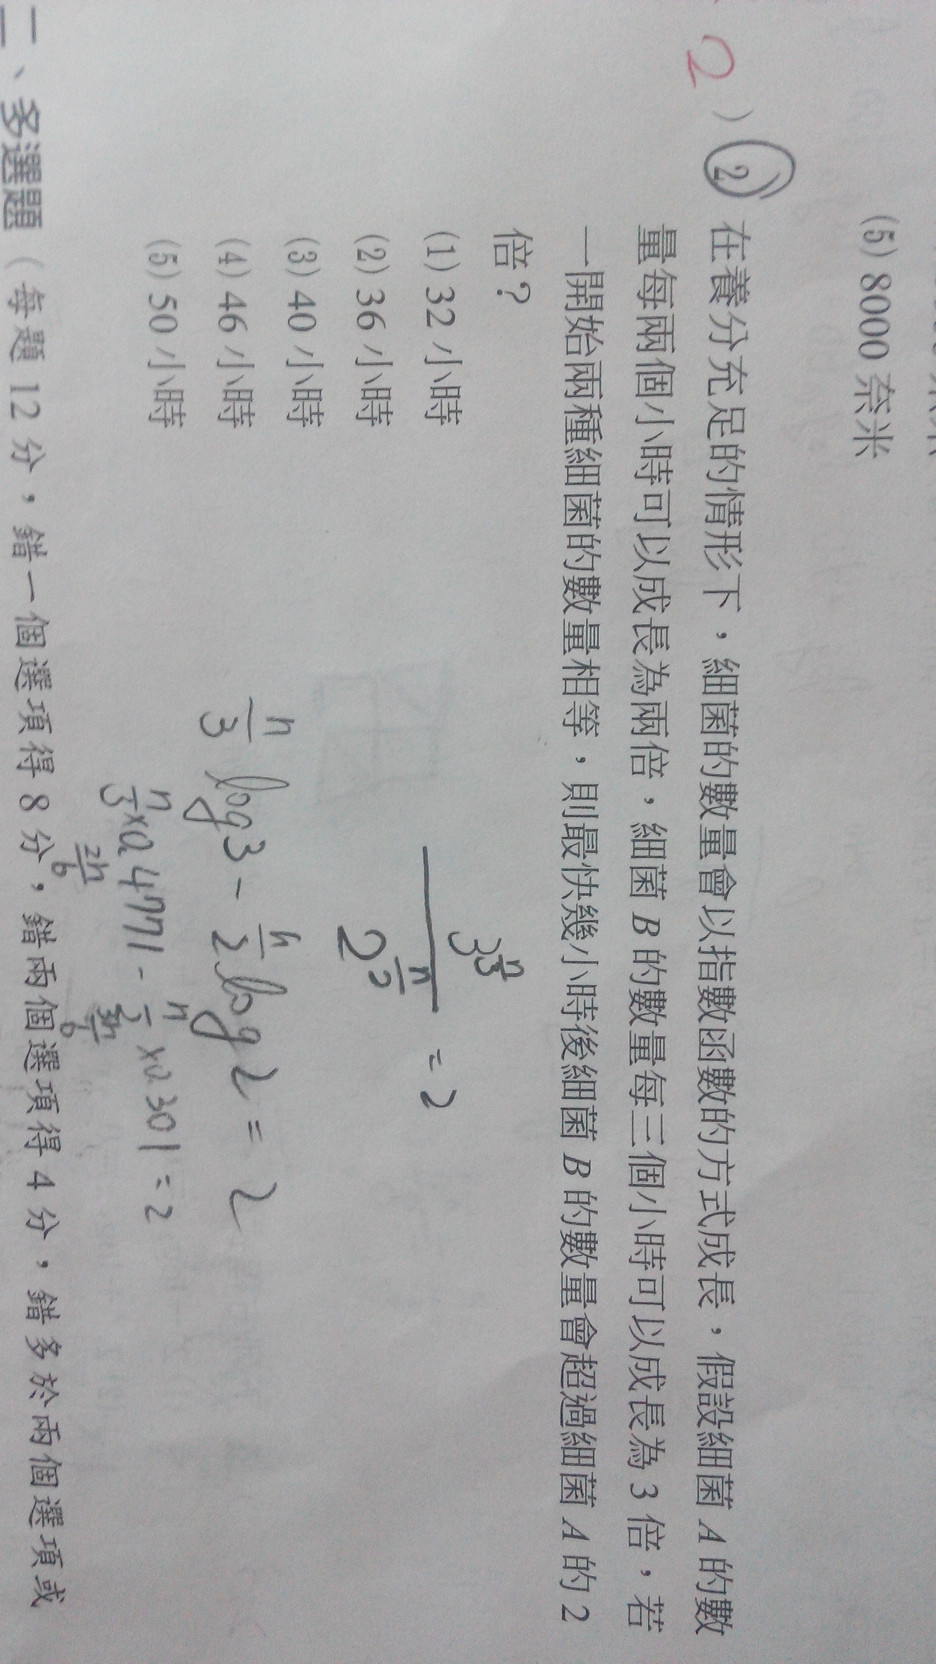 (5) 8000 奈米
2 ) 2 在養分充足的情形下，細菌的數量會以指數函數的方式成長，假設細菌 A 的數
量每兩個小時可以成長為兩倍，細菌 B 的數量每三個小時可以成長為 3 倍，若
一開始兩種細菌的數量相等，則最快幾小時後細菌 B 的數量會超過細菌 A 的 2
倍？
(1) 32 小時
(2) 36 小時
(3) 40 小時
(4) 46 小時
(5) 50 小時
3^(n/3) / 2^(n/2) = 2
n/3 log3 - n/2 log2 = 2
n/3 ×0.4771 - n/2 ×0.301 = 2
2n/6 3n/6
二、多選題（每題 12 分，錯一個選項得 8 分，錯兩個選項得 4 分，錯多於兩個選項或